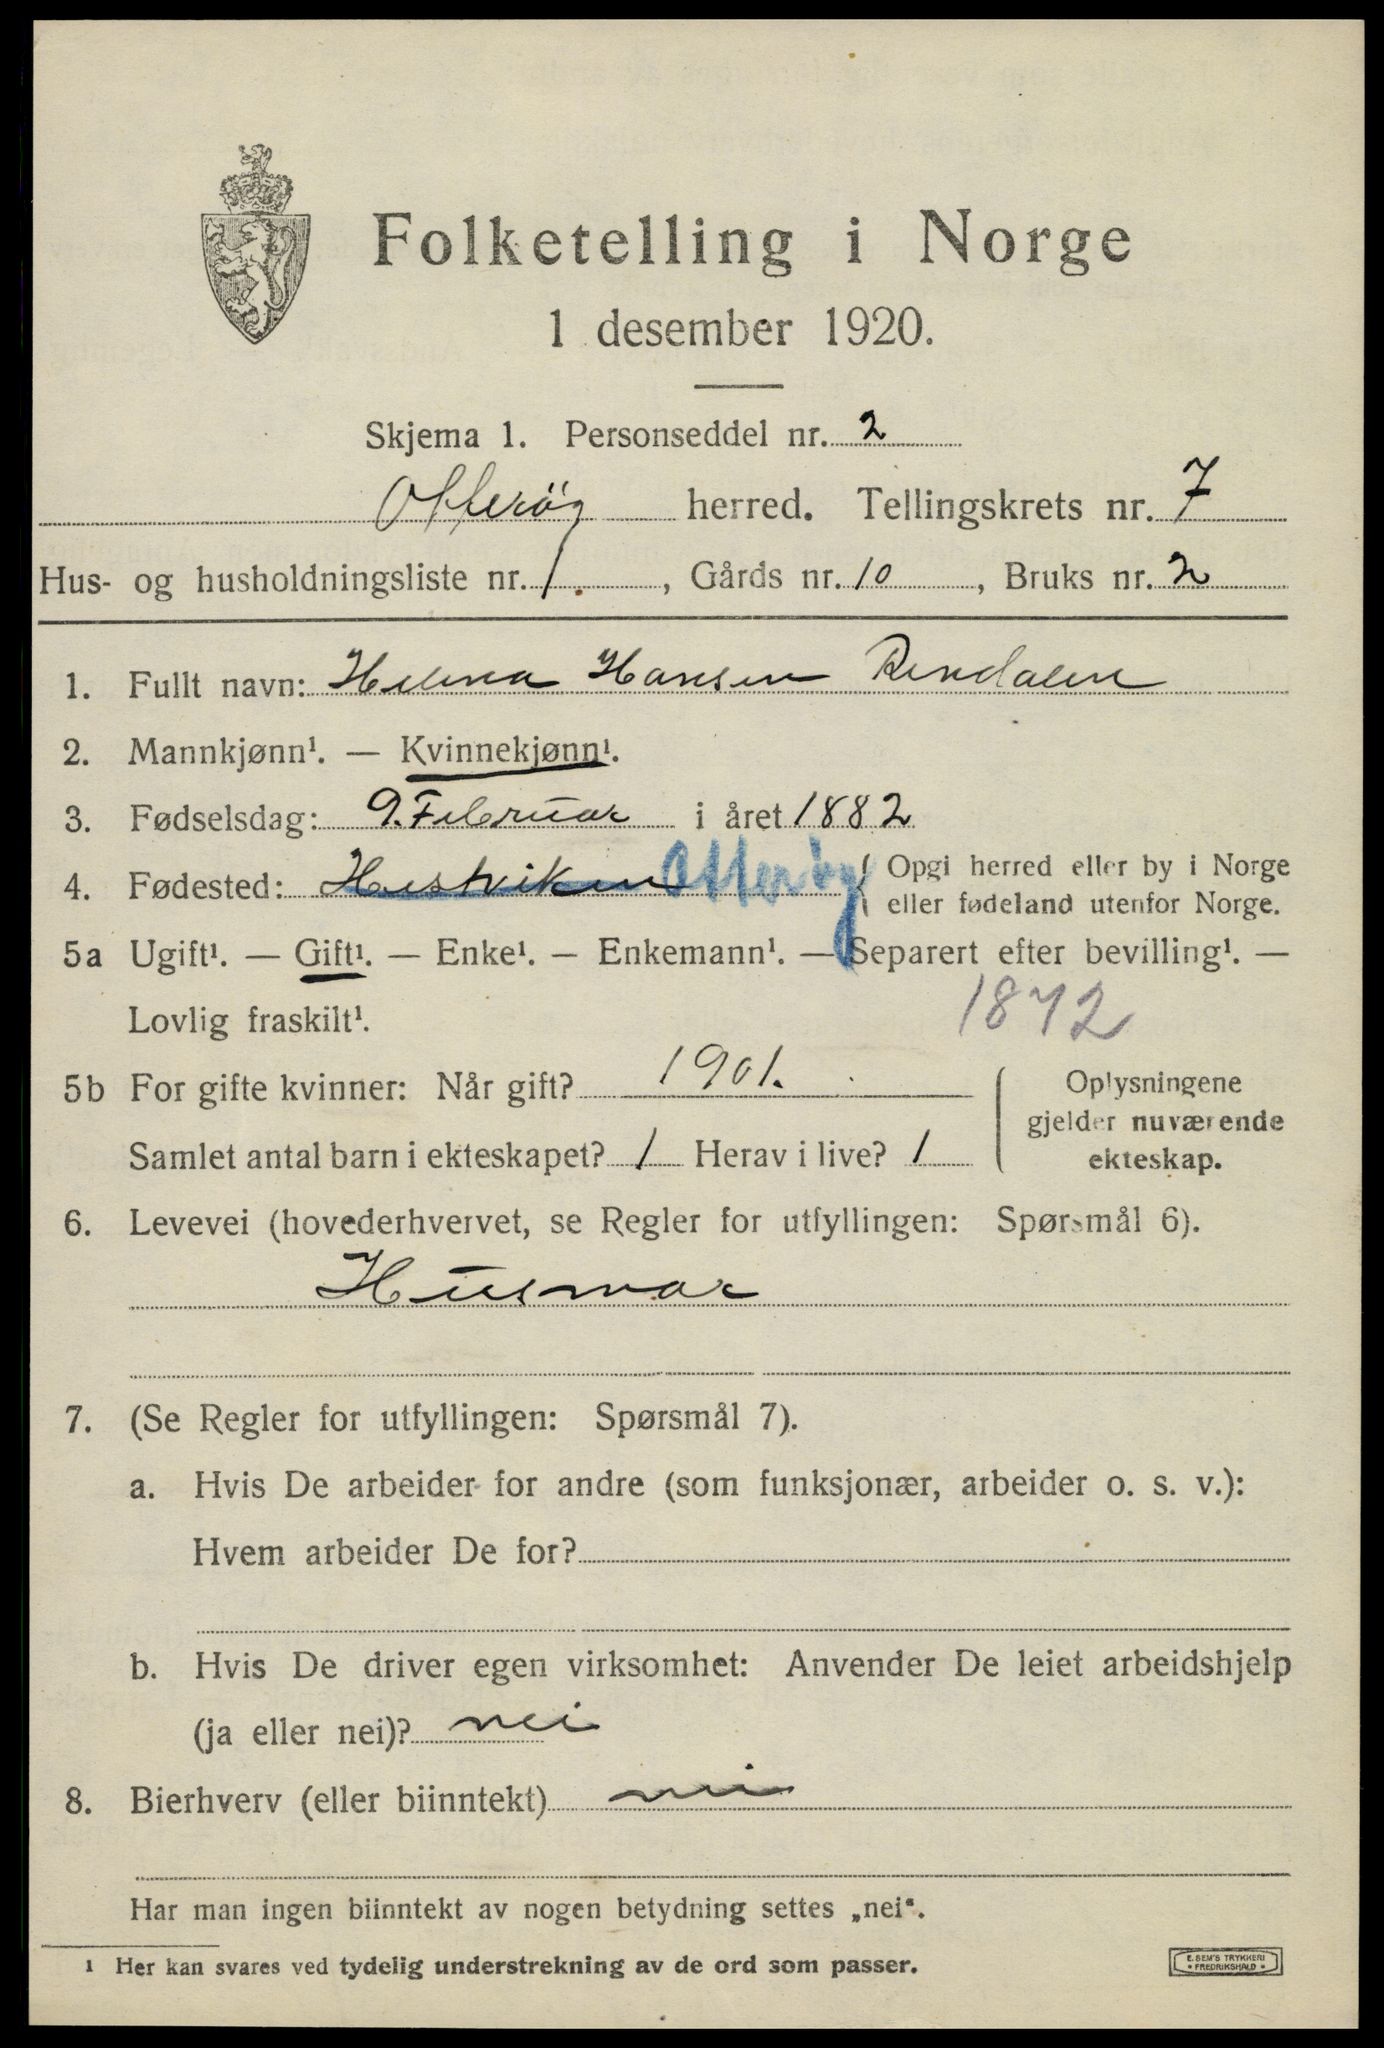 Folketelling i Norge
1 desember 1920.
Skjema 1. Personseddel nr. 2
Otterøy herred. Tellingskrets nr. 7
Hus- og husholdningsliste nr. 1. , Gårds nr. 10 , Bruks nr. 2
1. Fullt navn: Helena Hansen Rendalen
2. Mannkjønn¹. — Kvinnekjønn¹.
3. Fødselsdag: 9. Februar i året 1882
4. Fødested: Hestviken Otterøy { Opgi herred eller by i Norge
eller fødeland utenfor Norge.
5a Ugift¹. — Gift¹. — Enke¹. — Enkemann¹. — Separert efter bevilling¹. —
Lovlig fraskilt¹. 1872
5b For gifte kvinner: Når gift? 1901.
Samlet antal barn i ekteskapet? 1 Herav i live? 1
( Oplysningene
gjelder nuværende
ekteskap.
6. Levevei (hovederhvervet, se Regler for utfyllingen: Spørsmål 6).
Husmor
7. (Se Regler for utfyllingen: Spørsmål 7).
a. Hvis De arbeider for andre (som funksjonær, arbeider o. s. v.):
Hvem arbeider De for?
b. Hvis De driver egen virksomhet: Anvender De leiet arbeidshjelp
(ja eller nei)? nei
8. Bierhverv (eller biinntekt) nei
Har man ingen biinntekt av nogen betydning settes „nei“.
1 Her kan svares ved tydelig understrekning av de ord som passer.
E. SEM'S TRYKKERI
• FREDRIKSHALD •